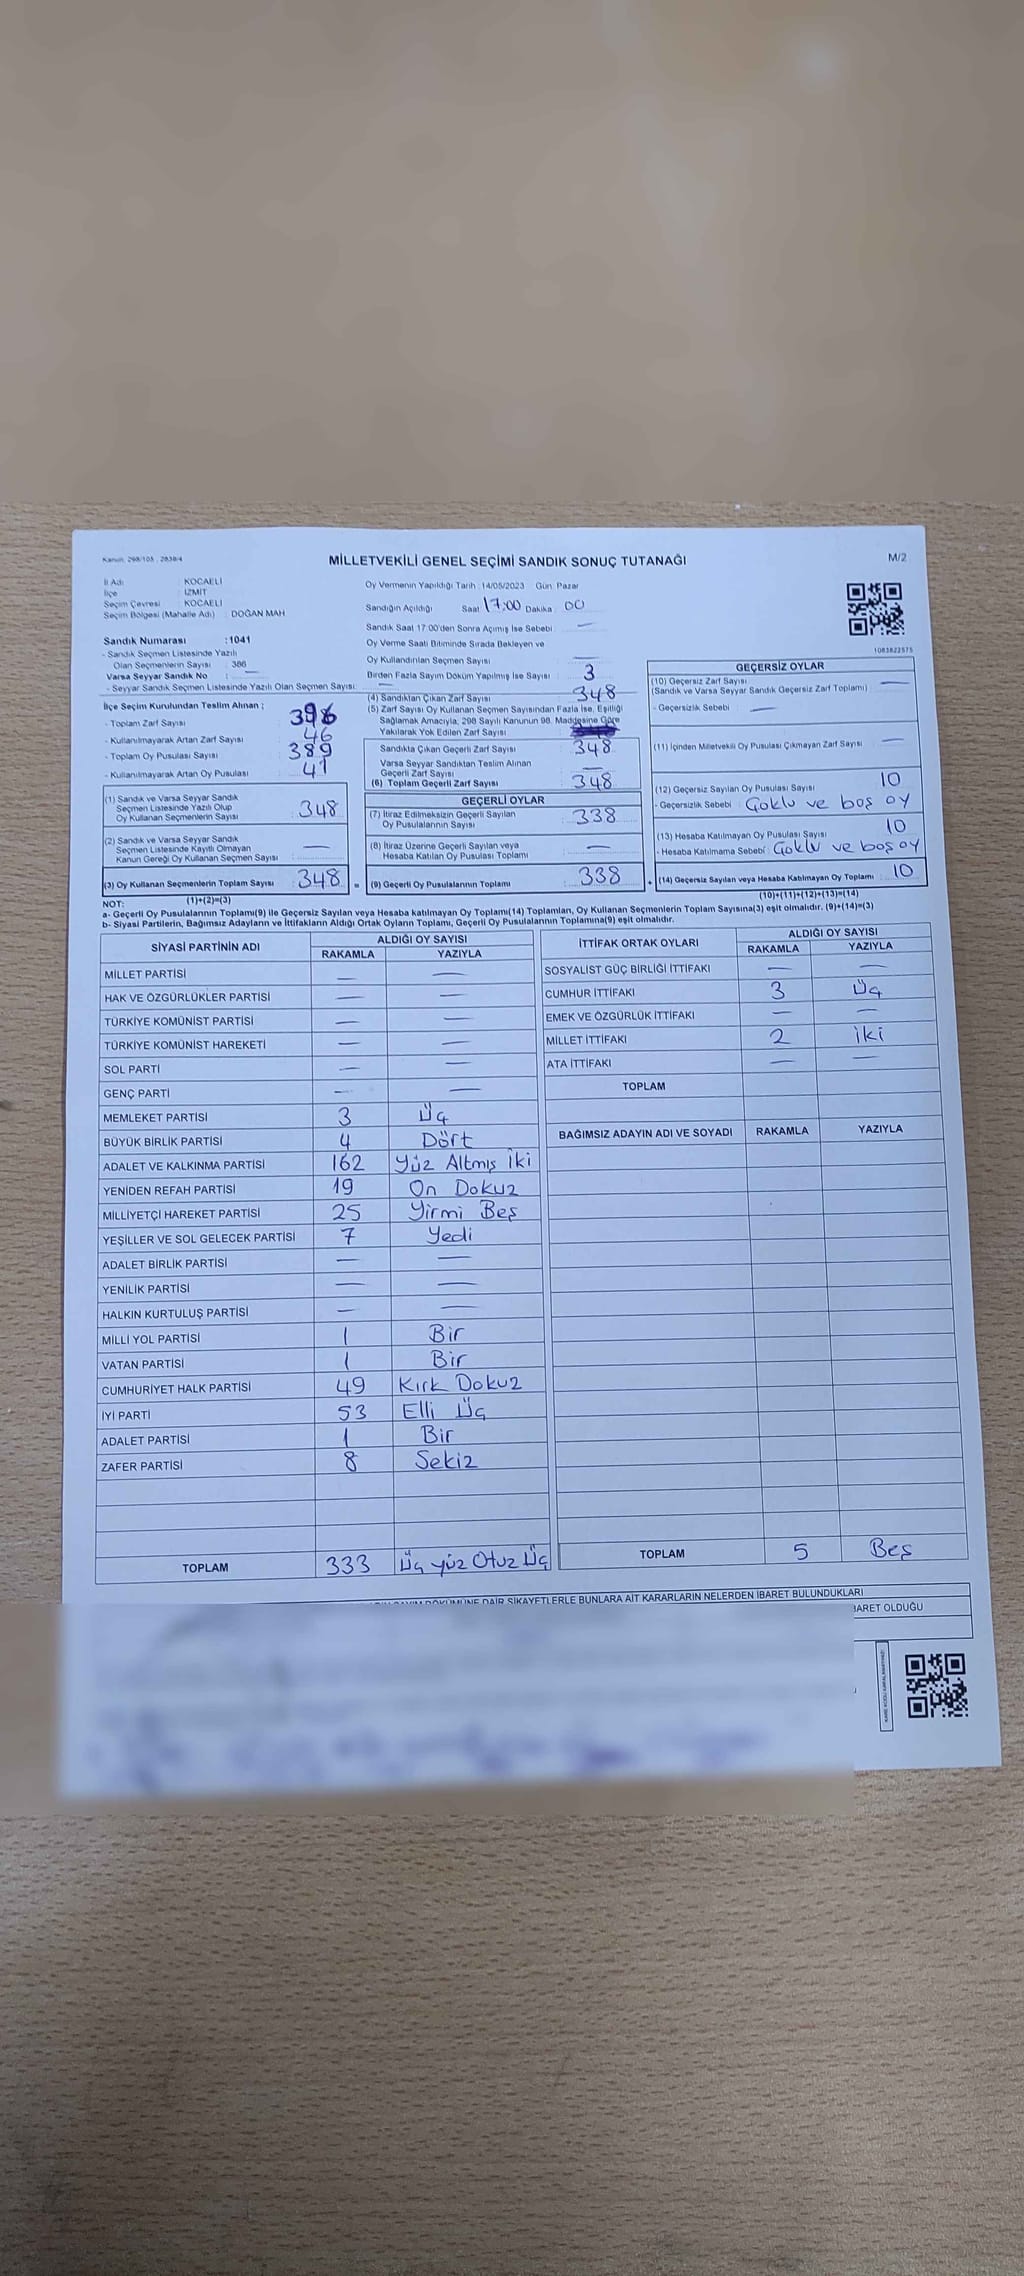 Kanun: 298/105 , 2839/4
MİLLETVEKİLİ GENEL SEÇİMİ SANDIK SONUÇ TUTANAĞI
M/2
İl Adı : KOCAELİ
İlçe : İZMİT
Seçim Çevresi : KOCAELİ
Seçim Bölgesi (Mahalle Adı) : DOĞAN MAH
Sandık Numarası :1041
- Sandık Seçmen Listesinde Yazılı
Olan Seçmenlerin Sayısı : 386
Varsa Seyyar Sandık No : —
- Seyyar Sandık Seçmen Listesinde Yazılı Olan Seçmen Sayısı: —
Oy Vermenin Yapıldığı Tarih :14/05/2023 Gün: Pazar
Sandığın Açıldığı Saat 17:00 Dakika : 00
Sandık Saat 17:00'den Sonra Açılmış İse Sebebi : —
Oy Verme Saati Bitiminde Sırada Bekleyen ve
Oy Kullandırılan Seçmen Sayısı —
Birden Fazla Sayım Döküm Yapılmış İse Sayısı : 3
1083822575
İlçe Seçim Kurulundan Teslim Alınan ;
- Toplam Zarf Sayısı : 396
- Kullanılmayarak Artan Zarf Sayısı : 46
- Toplam Oy Pusulası Sayısı : 389
- Kullanılmayarak Artan Oy Pusulası : 41
(1) Sandık ve Varsa Seyyar Sandık
Seçmen Listesinde Yazılı Olup
Oy Kullanan Seçmenlerin Sayısı : 348
(2) Sandık ve Varsa Seyyar Sandık
Seçmen Listesinde Kayıtlı Olmayan
Kanun Gereği Oy Kullanan Seçmen Sayısı : —
(3) Oy Kullanan Seçmenlerin Toplam Sayısı : 348 =
(4) Sandıktan Çıkan Zarf Sayısı : 348
(5) Zarf Sayısı Oy Kullanan Seçmen Sayısından Fazla İse, Eşitliği
Sağlamak Amacıyla, 298 Sayılı Kanunun 98. Maddesine Göre
Yakılarak Yok Edilen Zarf Sayısı
Sandıkta Çıkan Geçerli Zarf Sayısı : 348
Varsa Seyyar Sandıktan Teslim Alınan
Geçerli Zarf Sayısı : —
(6) Toplam Geçerli Zarf Sayısı : 348
GEÇERLİ OYLAR
(7) İtiraz Edilmeksizin Geçerli Sayılan
Oy Pusulalarının Sayısı : 338
(8) İtiraz Üzerine Geçerli Sayılan veya
Hesaba Katılan Oy Pusulası Toplamı : —
(9) Geçerli Oy Pusulalarının Toplamı : 338 +
GEÇERSİZ OYLAR
(10) Geçersiz Zarf Sayısı
(Sandık ve Varsa Seyyar Sandık Geçersiz Zarf Toplamı) —
- Geçersizlik Sebebi : —
(11) İçinden Milletvekili Oy Pusulası Çıkmayan Zarf Sayısı : —
(12) Geçersiz Sayılan Oy Pusulası Sayısı : 10
- Geçersizlik Sebebi : Çoklu ve boş oy
(13) Hesaba Katılmayan Oy Pusulası Sayısı : 10
- Hesaba Katılmama Sebebi : Çoklu ve boş oy
(14) Geçersiz Sayılan veya Hesaba Katılmayan Oy Toplamı : 10
NOT: (1)+(2)=(3)
(10)+(11)+(12)+(13)=(14)
a- Geçerli Oy Pusulalarının Toplamı(9) ile Geçersiz Sayılan veya Hesaba katılmayan Oy Toplamı(14) Toplamları, Oy Kullanan Seçmenlerin Toplam Sayısına(3) eşit olmalıdır. (9)+(14)=(3)
b- Siyasi Partilerin, Bağımsız Adayların ve İttifakların Aldığı Ortak Oyların Toplamı, Geçerli Oy Pusulalarının Toplamına(9) eşit olmalıdır.
SİYASİ PARTİNİN ADI ALDIĞI OY SAYISI
RAKAMLA YAZIYLA
MİLLET PARTİSİ — —
HAK VE ÖZGÜRLÜKLER PARTİSİ — —
TÜRKİYE KOMÜNİST PARTİSİ — —
TÜRKİYE KOMÜNİST HAREKETİ — —
SOL PARTİ — —
GENÇ PARTİ — —
MEMLEKET PARTİSİ 3 Üç
BÜYÜK BİRLİK PARTİSİ 4 Dört
ADALET VE KALKINMA PARTİSİ 162 Yüz Altmış İki
YENİDEN REFAH PARTİSİ 19 On Dokuz
MİLLİYETÇİ HAREKET PARTİSİ 25 Yirmi Beş
YEŞİLLER VE SOL GELECEK PARTİSİ 7 Yedi
ADALET BİRLİK PARTİSİ — —
YENİLİK PARTİSİ — —
HALKIN KURTULUŞ PARTİSİ — —
MİLLİ YOL PARTİSİ 1 Bir
VATAN PARTİSİ 1 Bir
CUMHURİYET HALK PARTİSİ 49 Kırk Dokuz
İYİ PARTİ 53 Elli Üç
ADALET PARTİSİ 1 Bir
ZAFER PARTİSİ 8 Sekiz
TOPLAM 333 Üç yüz Otuz Üç
İTTİFAK ORTAK OYLARI ALDIĞI OY SAYISI
RAKAMLA YAZIYLA
SOSYALİST GÜÇ BİRLİĞİ İTTİFAKI — —
CUMHUR İTTİFAKI 3 Üç
EMEK VE ÖZGÜRLÜK İTTİFAKI — —
MİLLET İTTİFAKI 2 İki
ATA İTTİFAKI — —
TOPLAM
BAĞIMSIZ ADAYIN ADI VE SOYADI RAKAMLA YAZIYLA
TOPLAM 5 Beş
DÖKÜMÜNE DAİR ŞİKAYETLERLE BUNLARA AİT KARARLARIN NELERDEN İBARET BULUNDUKLARI
İBARET OLDUĞU